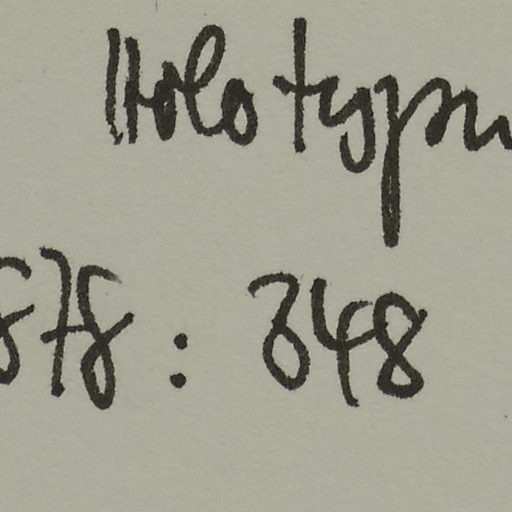 Holotypu
878: 348